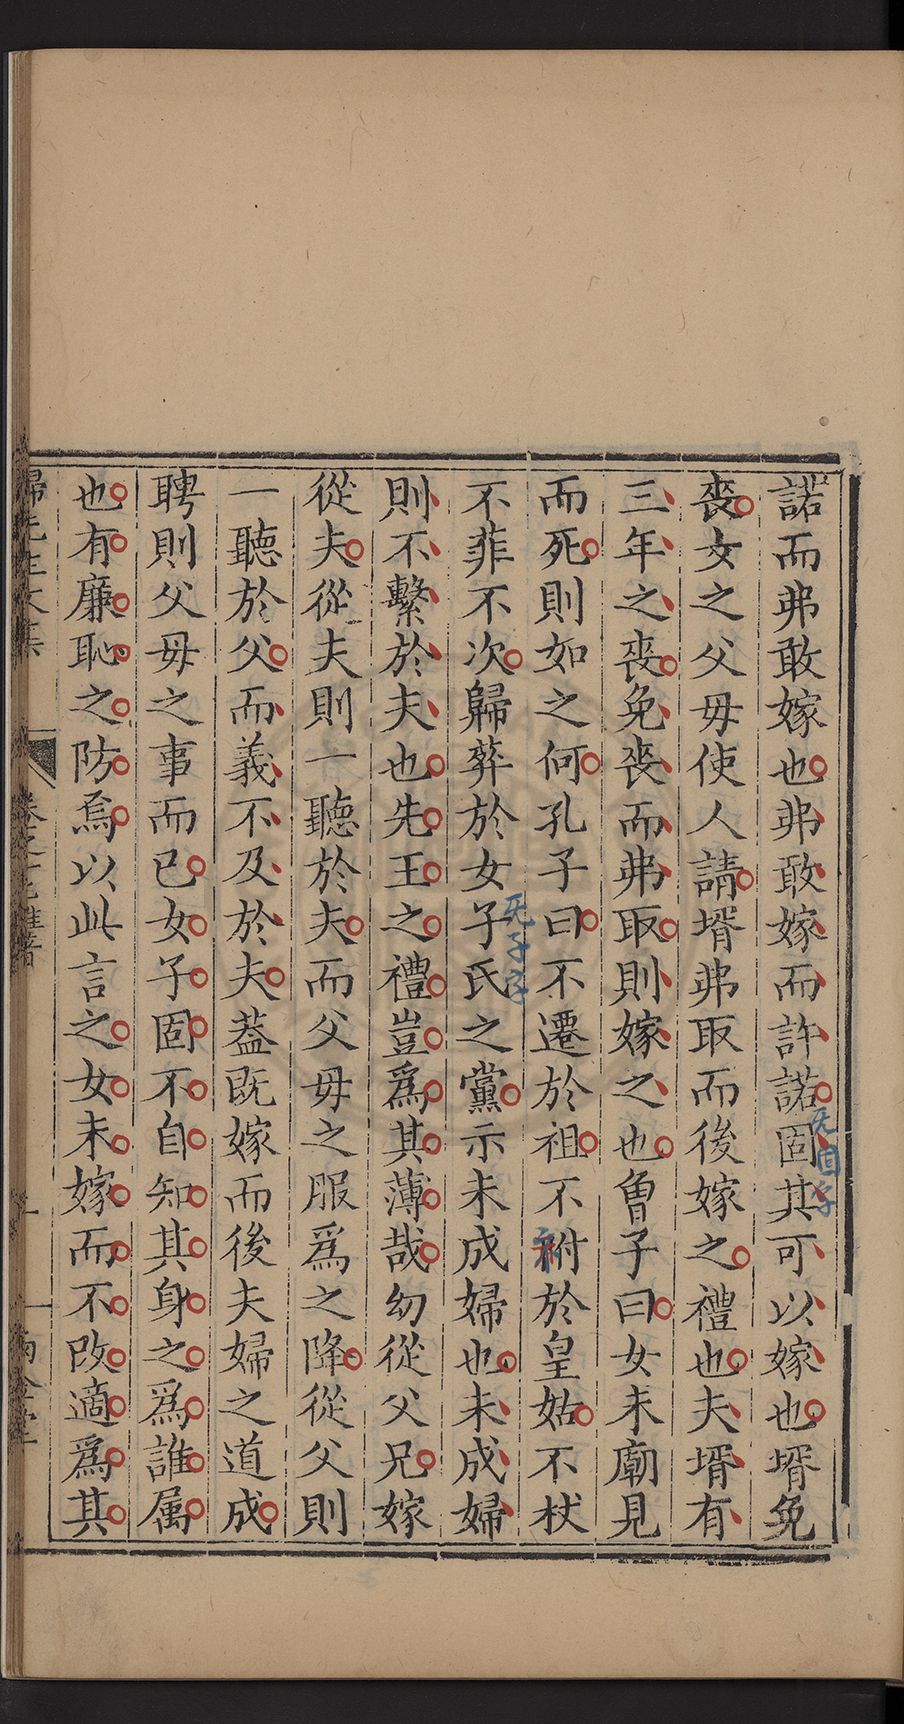 諾而弗敢嫁也弗敢嫁而許諾固其可以嫁也壻免
无固字
喪女之父母使人請壻弗取而後嫁之禮也夫壻有
三年之喪免喪而弗取則嫁之也曾子曰女未廟見
而死則如之何孔子曰不遷於祖不祔於皇姑不杖
不菲不次歸葬於女子氏之黨示未成婦也未成婦
无子字
則不繫於夫也先王之禮豈爲其薄哉幼從父兄嫁
從夫從夫則一聽於夫而父母之服爲之降從父則
一聽於父而義不及於夫葢既嫁而後夫婦之道成
聘則父母之事而已女子固不自知其身之爲誰属
也有廉恥之防焉以此言之女未嫁而不改適爲其
歸先生文集
卷之 雜著